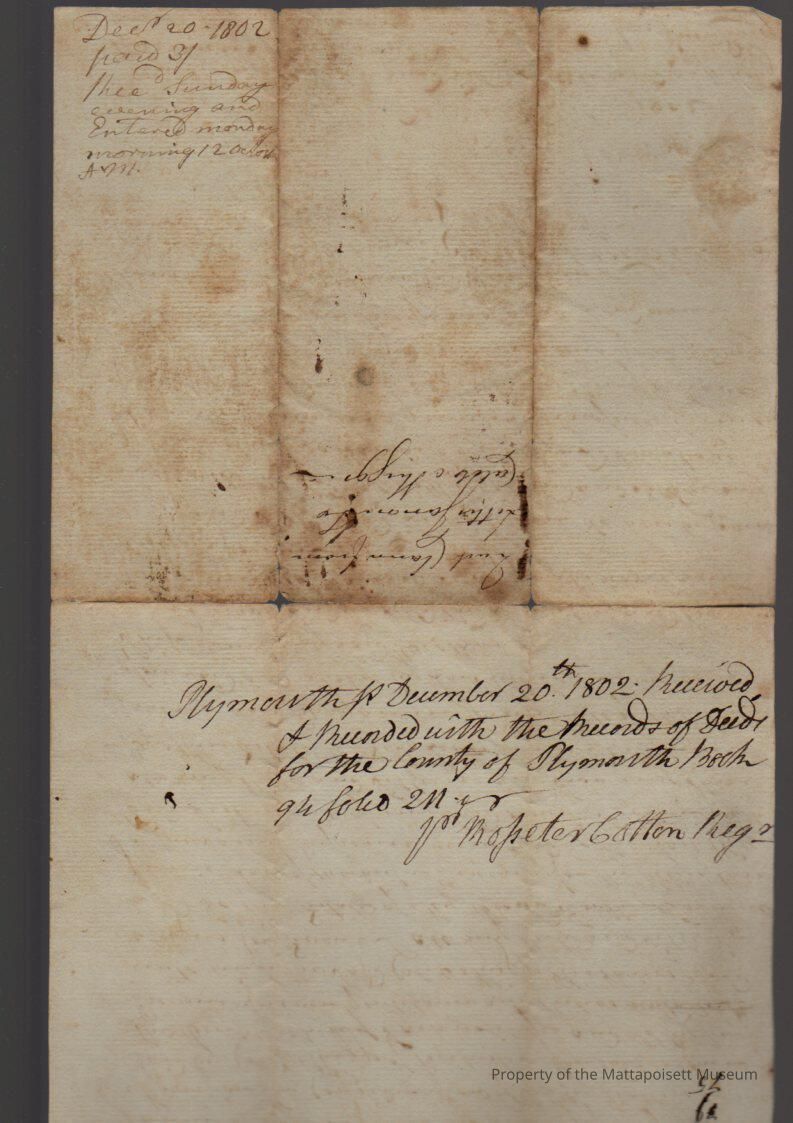 Decr 20 1802
paid 3/
Recd Sunday
evening and
Entered monday
morning 12 oclock
A:M.
Quit Claim from
Caleb
Plymouth ss December 20th. 1802. Received
& Recorded with the Records of Deeds
for the County of Plymouth Book
94 folio 211.
pr Rosseter Cotton Regr
Property of the Mattapoisett Museum